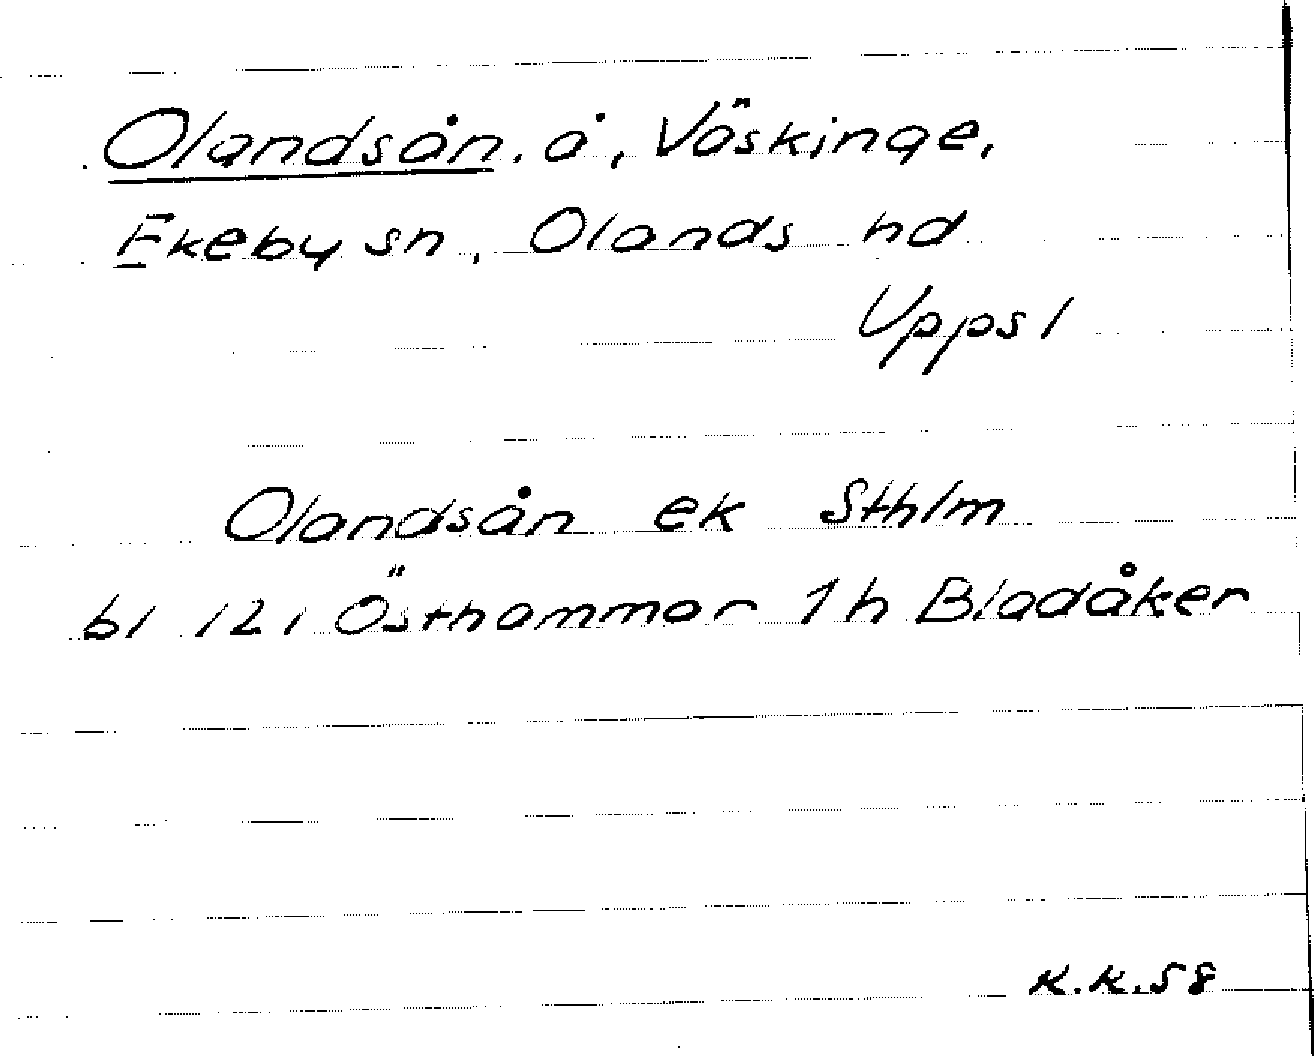 Olandsån, å, Väskinge,
Ekeby sn, Olands hd
Uppsl
Olandsån ek Sthlm
bl 12 i Östhammar 1 h Bladåker
K.K. 58